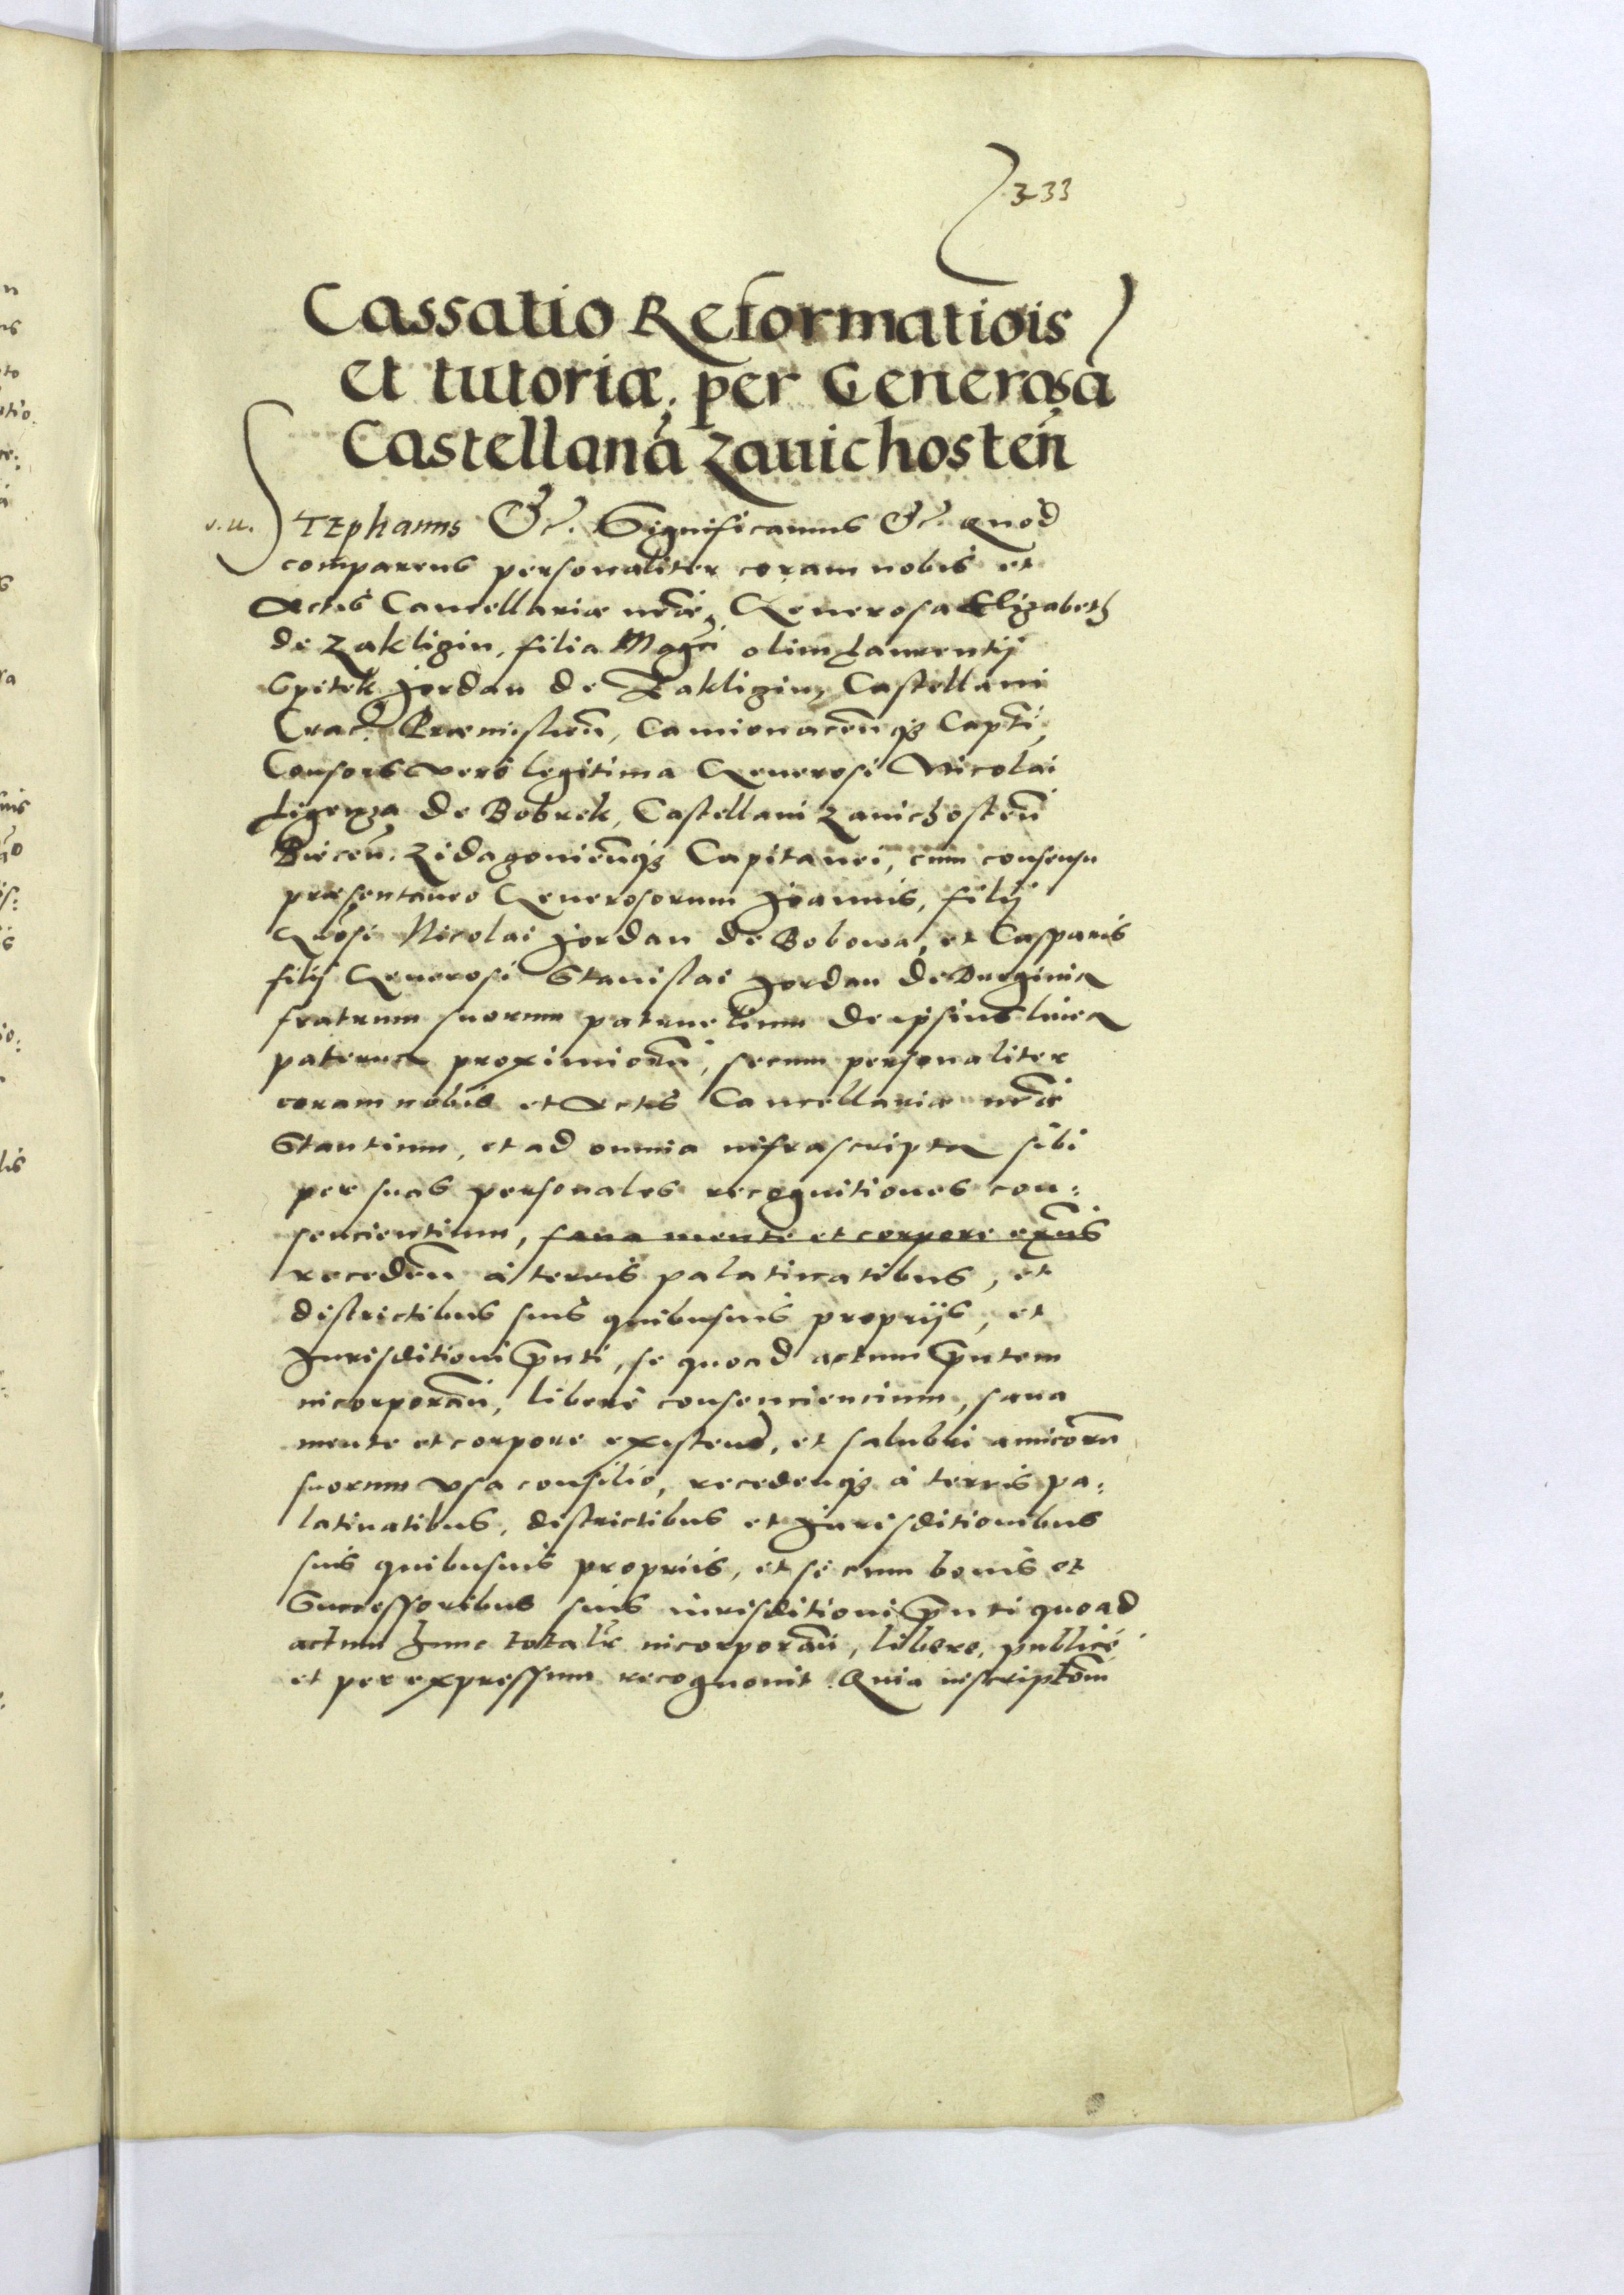 333
Cassatio Reformatiois
et tutoriæ, per Generosā
Castellanā Zauichosteñ
v. u. STEphanus &c. Significamus &c. Quod
comparens personaliter coram nobis et
Actis Cancellariæ nr̃æ, Generosa Elizabeth
de Zakligin, filia Magci olim Laurentij
Spitek Jordan de Zakligin, Castellani
Crac. Præmislieñ, Camionaceñqꝫ Capti,
Consors vero legitima Generosi Nicolai
Ligenza de Bobrek, Castellani Zauichosteñ
Bieceñ. Zidagonieñqꝫ Capitanei, cum consensu
præsentaneo Generosorum Joannis, filij
Gnosi Nicolai Jordan de Bobowa, et Casparis
filij Generosi Stanislai Jordan de
fratrum suorum patruelium de ipsius linea
paterna proximiorū, secum personaliter
coram nobis et Actis Cancellariæ nr̃æ
Stantium, et ad omnia infrascripta sibi
per suas personales recognitiones con:
sencientium, sana mente et corpore exñs
recedeñ à terris palatinatibus, et
districtibus suis quibusuis proprijs, et
Jurisditioni pñti, se quoad actum pñtem
incorporañ, liberè consenciencium, sana
mente et corpore existend, et salubri amicorū
suorum vsa consilio, recedenqꝫ à terris pa:
latinatibus, districtibus et Jurisditionibus
suis quibusuis propriis, et se cum bonis et
Successoribus suis iurisditioni pñti quoad
actum hunc totalr incorporañ, libere, publicè
et per expressum recognouit. Quia inscriptõm